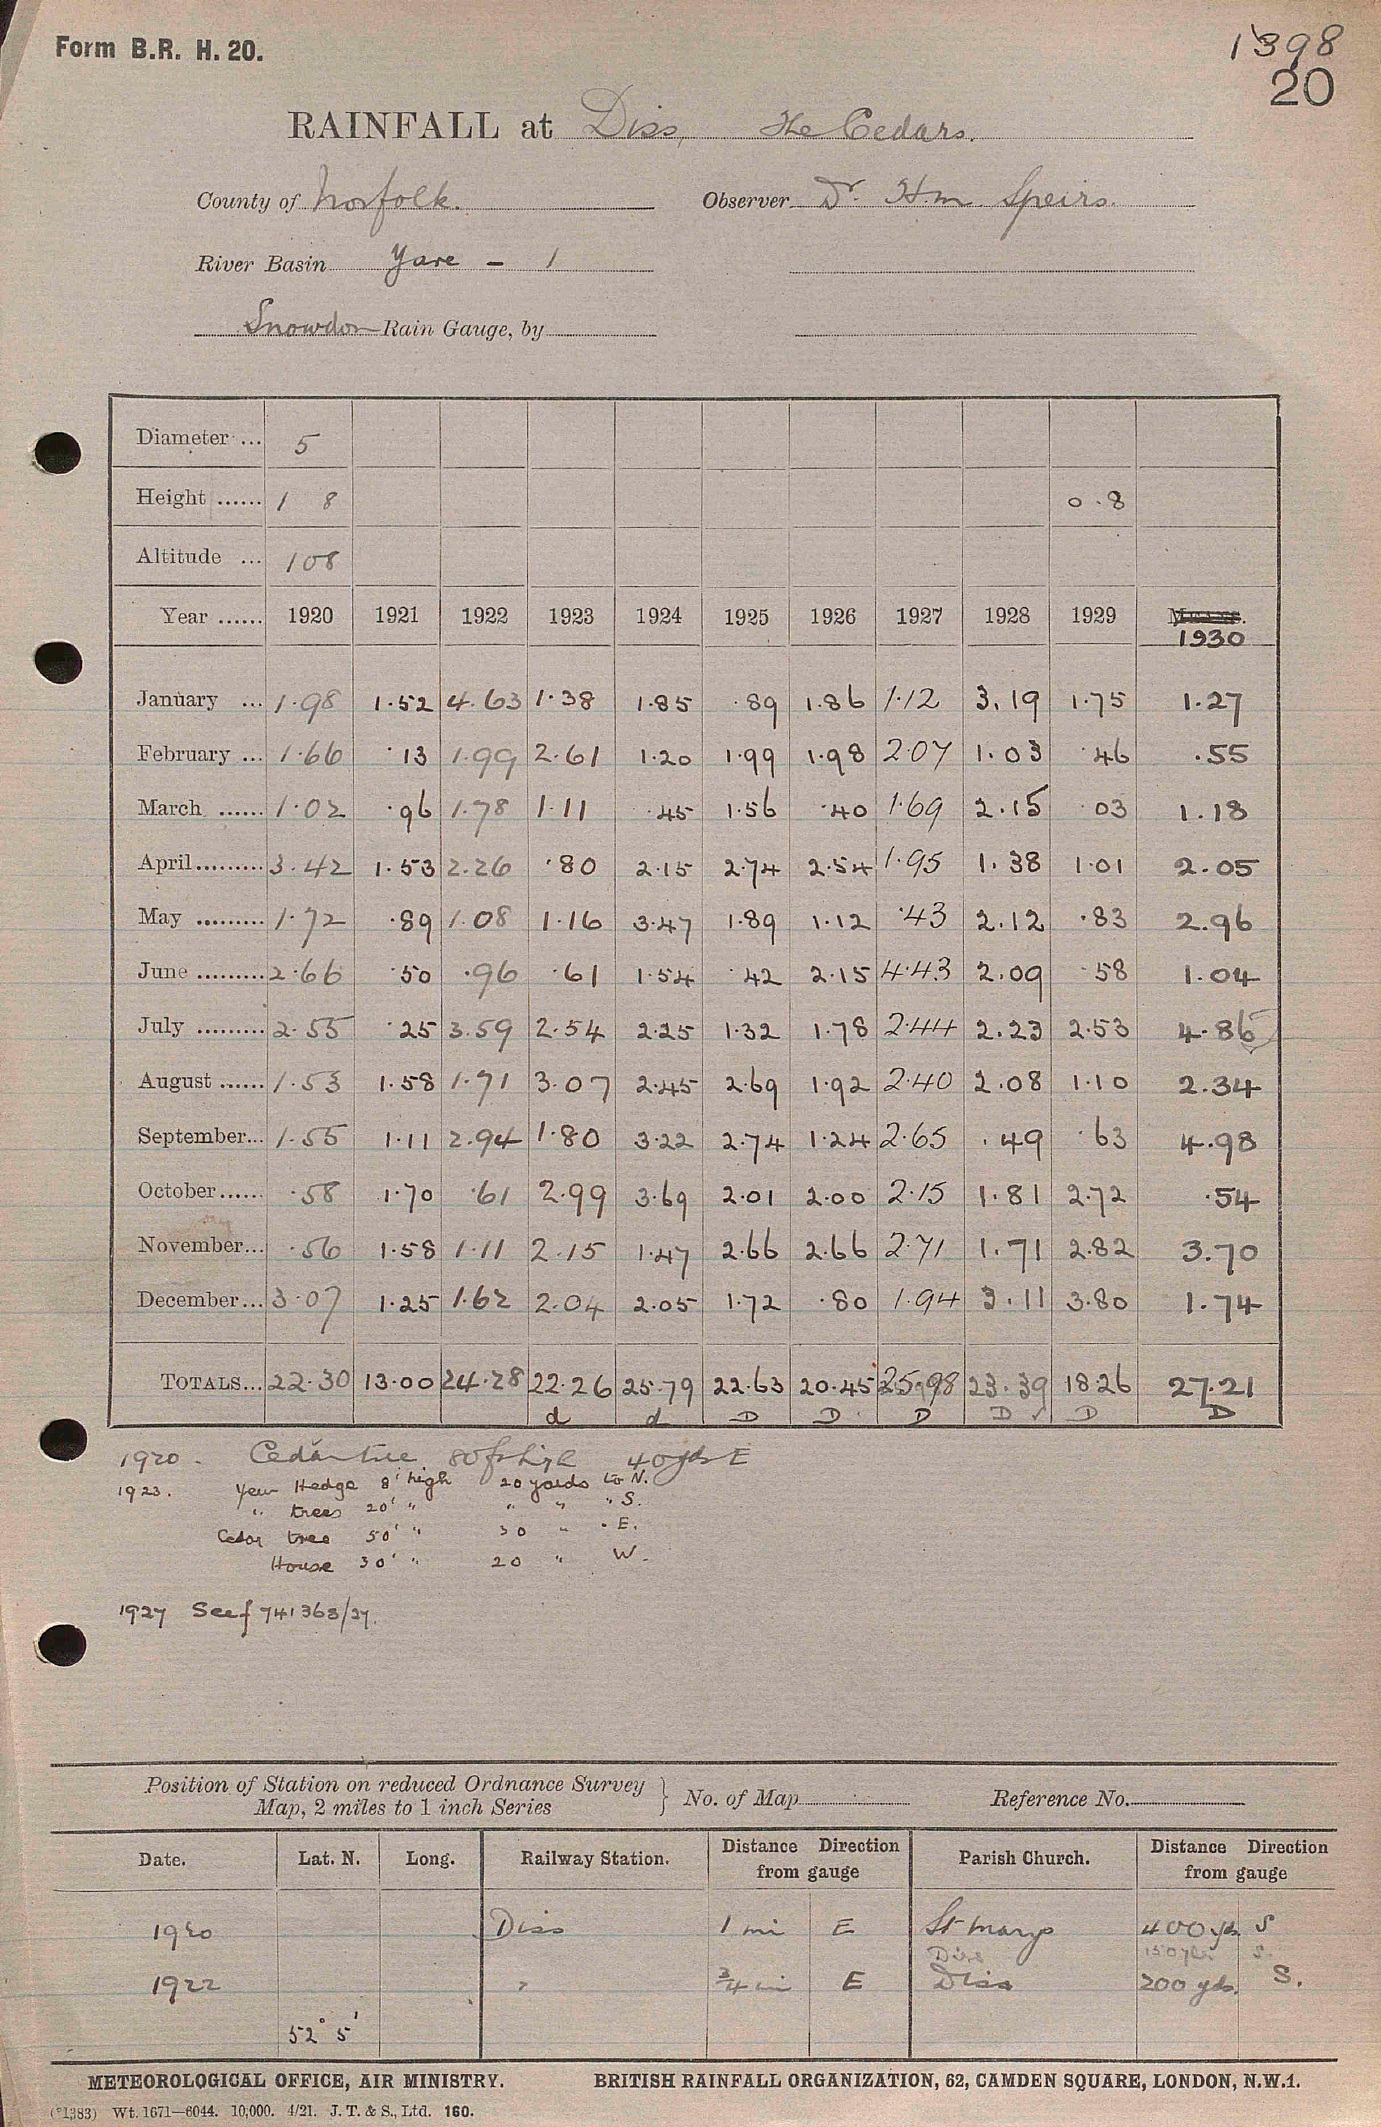 Form B.R. H. 20.
1398
20
RAINFALL at Diss, The Cedars.
County of Norfolk. Observer Dr. H.M. Speirs.
River Basin Yare - 1
Snowdon Rain Gauge, by
Diameter ... 5
Height ...... 1 8 0.8
Altitude ... 108
Year ...... 1920 1921 1922 1923 1924 1925 1926 1927 1928 1929 Means.
1930
January ... 1.98 1.52 4.63 1.38 1.85 .89 1.86 1.12 3.19 1.75 1.27
February ... 1.66 .13 1.99 2.61 1.20 1.99 1.98 2.07 1.03 .46 .55
March ...... 1.02 .96 1.78 1.11 .45 1.56 .40 1.69 2.15 .03 1.18
April ......... 3.42 1.53 2.26 .80 2.15 2.74 2.54 1.95 1.38 1.01 2.05
May ......... 1.72 .89 1.08 1.16 3.47 1.89 1.12 .43 2.12 .83 2.96
June ......... 2.66 .50 .96 .61 1.54 .42 2.15 4.43 2.09 .58 1.04
July ......... 2.55 .25 3.59 2.54 2.25 1.32 1.78 2.44 2.23 2.53 4.86
August ...... 1.53 1.58 1.71 3.07 2.45 2.69 1.92 2.40 2.08 1.10 2.34
September... 1.55 1.11 2.94 1.80 3.22 2.74 1.24 2.65 .49 .63 4.98
October...... .58 1.70 .61 2.99 3.69 2.01 2.00 2.15 1.81 2.72 .54
November... .56 1.58 1.11 2.15 1.47 2.66 2.66 2.71 1.71 2.82 3.70
December... 3.07 1.25 1.62 2.04 2.05 1.72 .80 1.94 3.11 3.80 1.74
TOTALS... 22.30 13.00 24.28 22.26 25.79 22.63 20.45 25.98 23.39 18.26 27.21
d d D D D D ✓ D D
1920. Cedar tree 80ft high 40 yds E
1923. Yew Hedge 8' high 20 yards to N.
" trees 20' " " " " S.
Cedar tree 50' " 30 " " E.
House 30' " 20 " W.
1927 See f 741363/27.
Position of Station on reduced Ordnance Survey
Map, 2 miles to 1 inch Series } No. of Map Reference No.
Date. Lat. N. Long. Railway Station. Distance Direction from gauge Parish Church. Distance Direction from gauge
1920 Diss 1 mi E St Marys 400 yds S
Diss 150 yds S.
1922 " 3/4 mi E Diss 200 yds. S.
52° 5'
METEOROLOGICAL OFFICE, AIR MINISTRY. BRITISH RAINFALL ORGANIZATION, 62, CAMDEN SQUARE, LONDON, N.W.1.
(*1383) Wt. 1671—6044. 10,000. 4/21. J. T. & S., Ltd. 160.